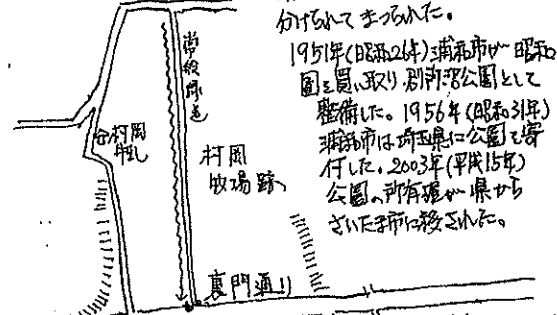 分けられてまつられた。
1951年(昭和26年)浦和市が昭和
園を買い取り、別所沼公園として
整備した。1956年(昭和31年)
浦和市は埼玉県に公園を寄
付した。2003年(平成15年)
公園の所有権が県から
さいたま市に移された。
常盤緑道
村岡
牧場跡
村岡
牛乳
裏門通り